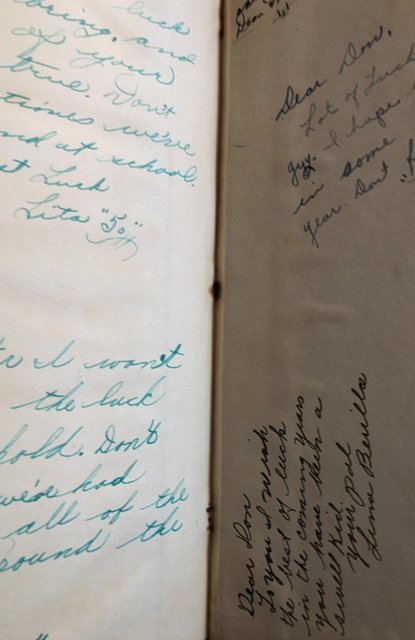 luck
bring, and
of your
true. Don't
times we've
nd at school.
st Luck
Lita "50"
I want
the luck
hold. Don't
we've had
all of the
round the
Dear Don,
Lot of Luck
guy. I hope
in some
year. Don't
Dear Don
To you I wish
the best of luck
in the coming years
you have been a
swell kid.
Your pal